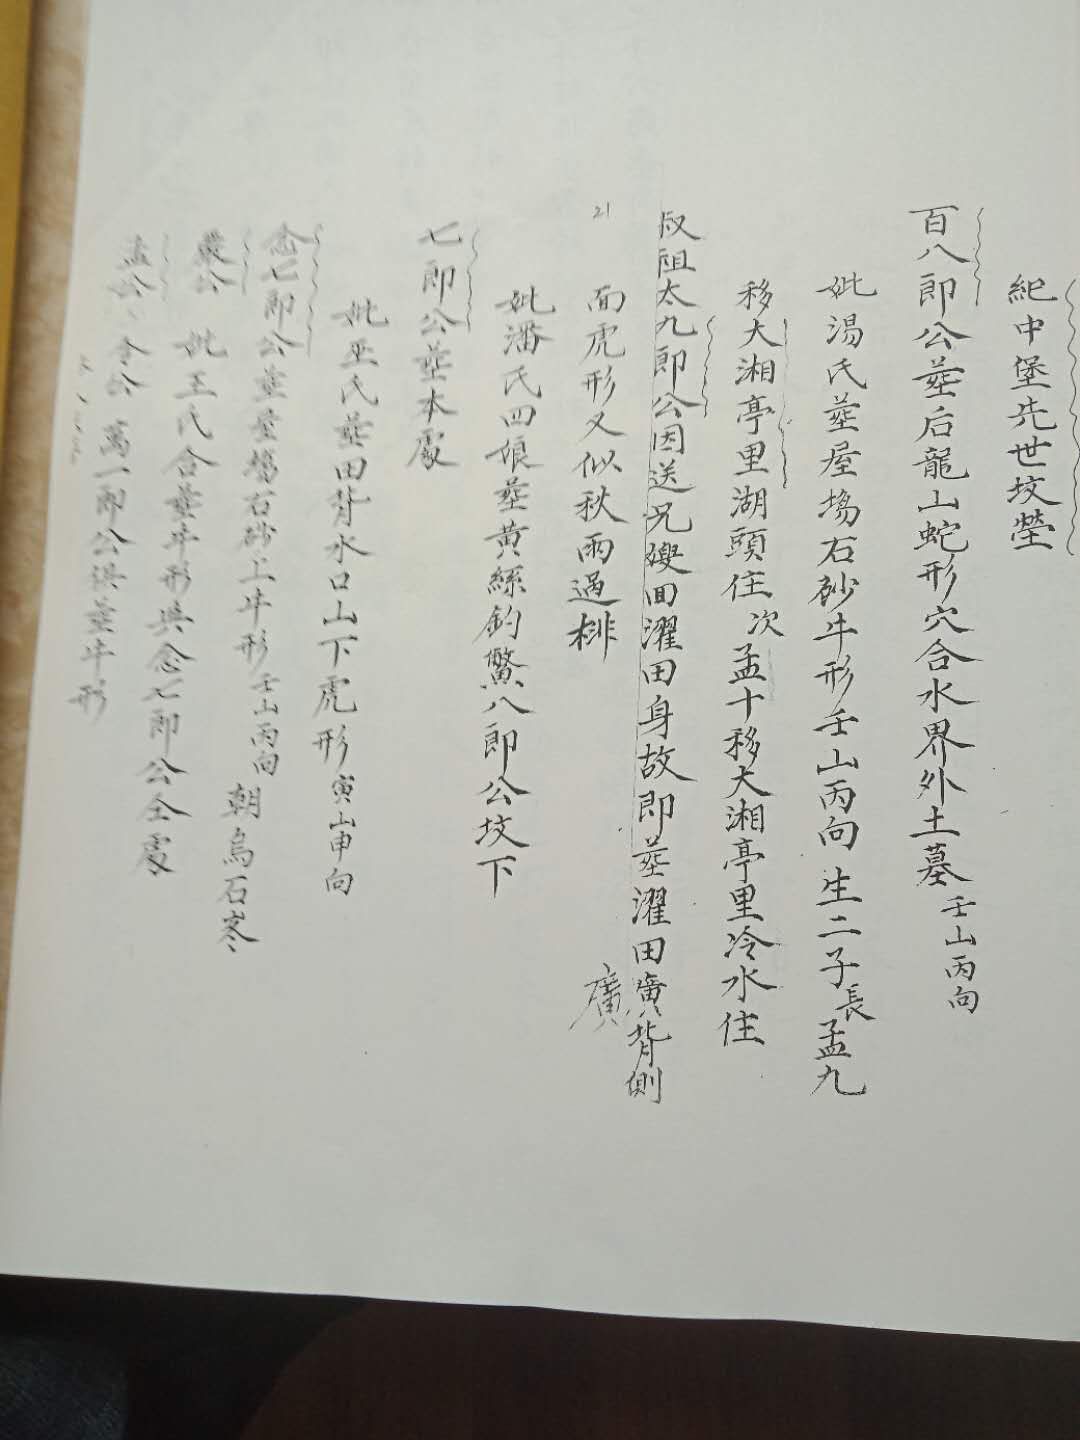 紀中堡先世坟塋
百八郎公塟后龍山蛇形穴合水界外土墓壬山丙向
妣湯氏塟屋場石砂牛形壬山丙向生二子長孟九
移大湘亭里湖頭住次孟十移大湘亭里冷水住
叔祖太九郎公因送兄嫂回濯田身故即塟濯田廣背側
廣
21
面虎形又似秋雨過
妣潘氏四娘塟黄絲釣鱉八郎公坟下
七郎公塟本處
妣巫氏塟田背水口山下虎形寅山申向
念七郎公塟屋場石砂上牛形壬山丙向朝烏石岽
嚴公妣王氏合塟牛形與念七郎公仝處
孟公令公萬一郎公俱塟牛形